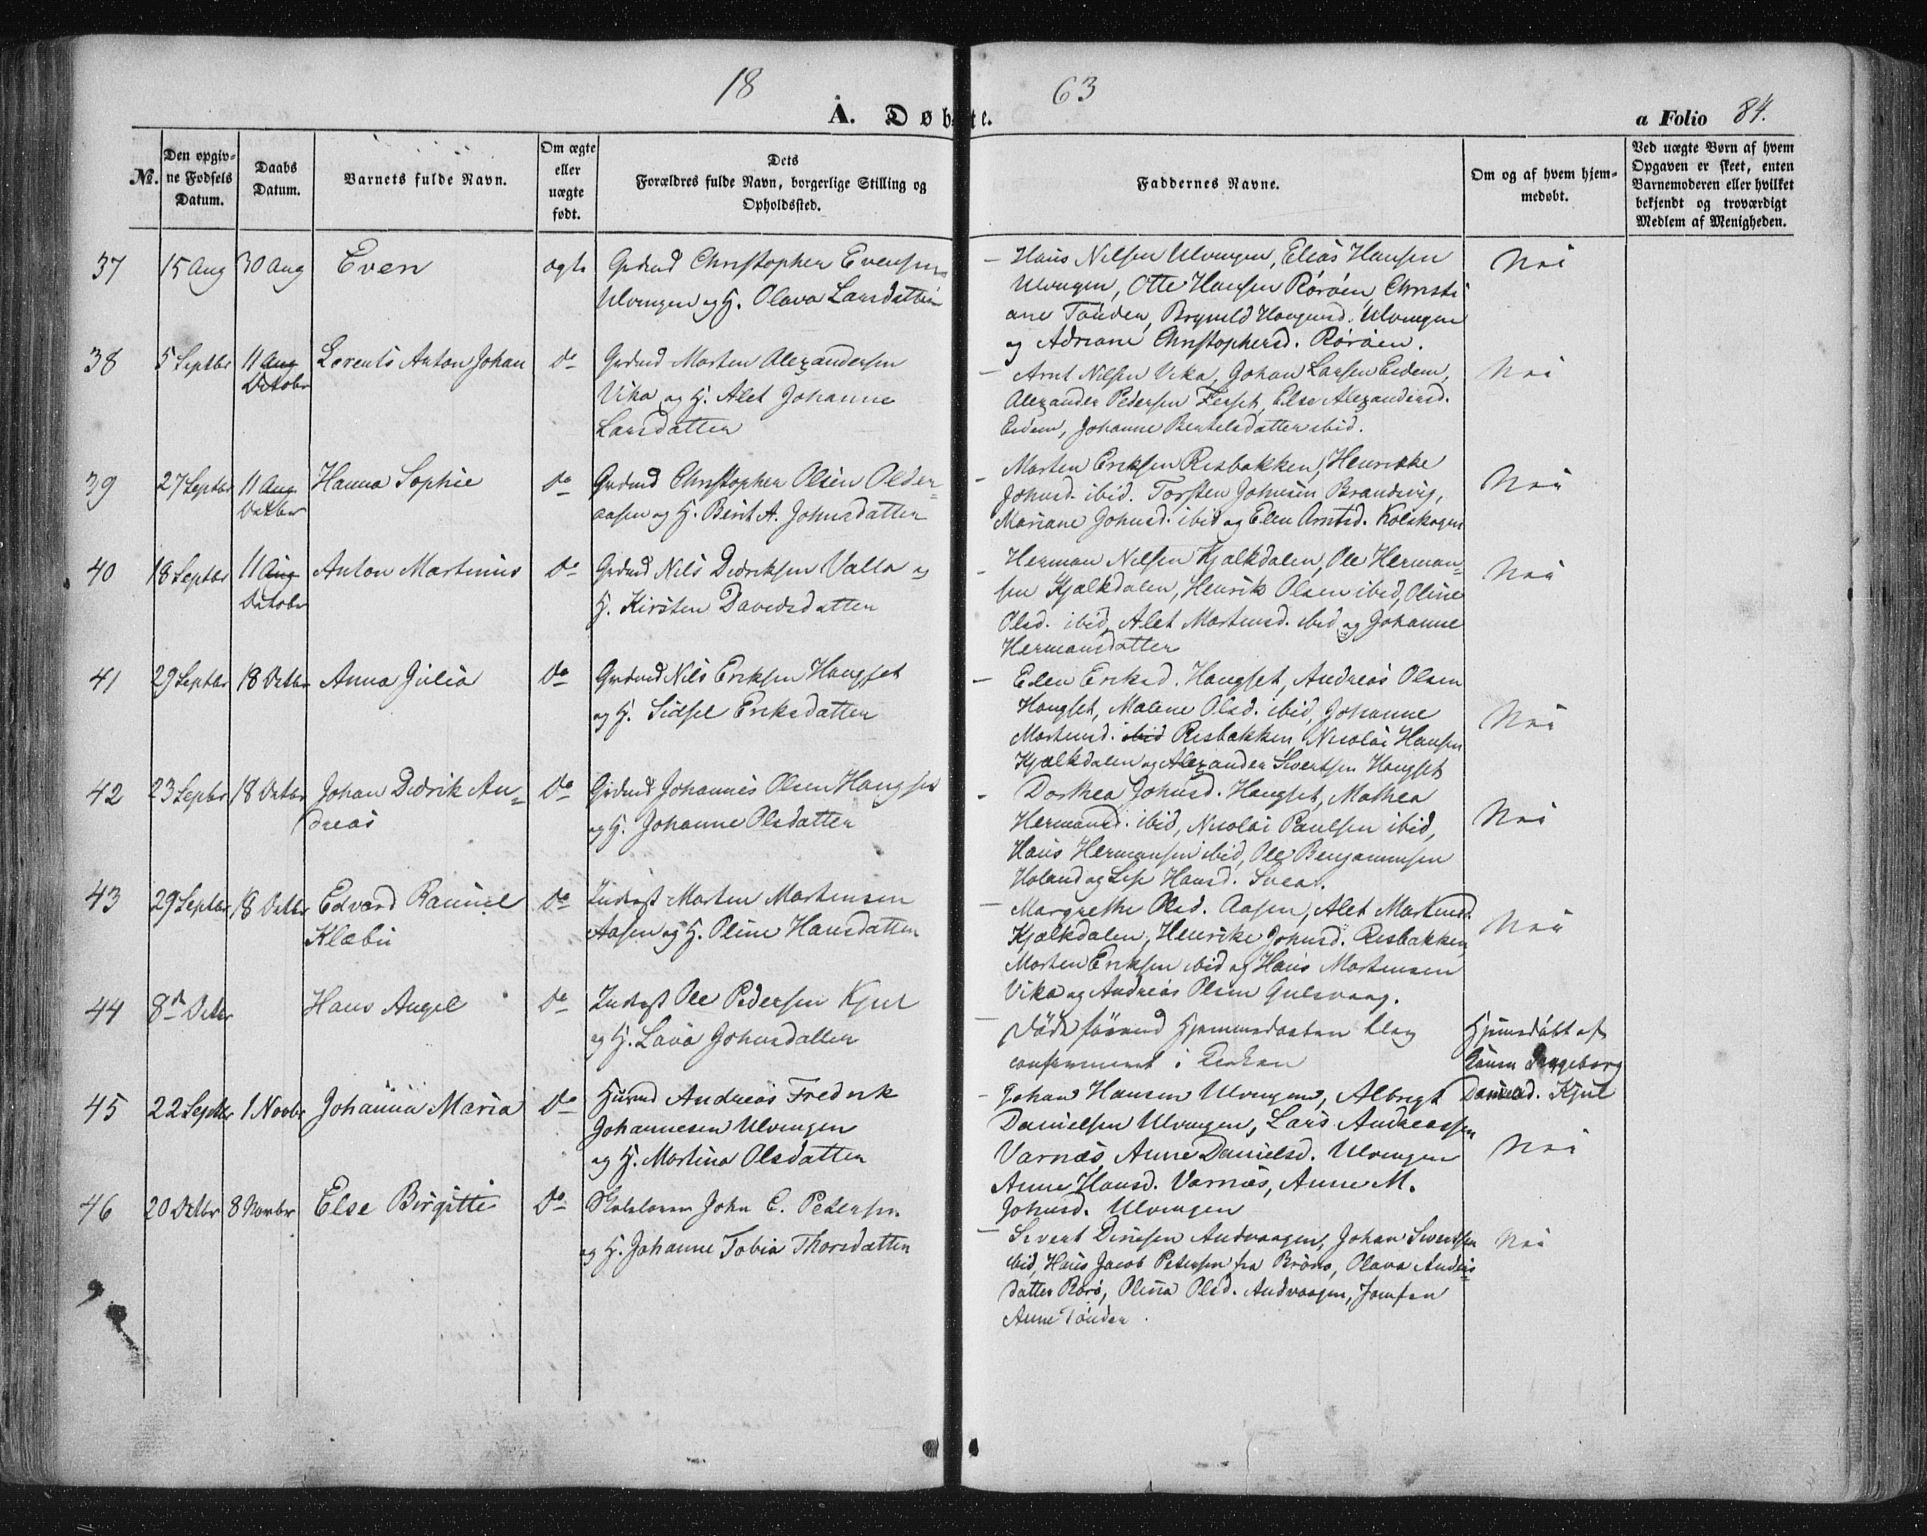 18 63
A. Døbte.
a Folio 84.
No.
Den opgivne Fødsels Datum.
Daabs Datum.
Barnets fulde Navn.
Om ægte eller uægte født.
Dets Forældres fulde Navn, borgerlige Stilling og Opholdssted.
Faddernes Navne.
Om og af hvem hjemmedøbt.
Ved uægte Børn af hvem Opgaven er skeet, enten Barnemoderen eller hvilket bekjendt og troværdigt Medlem af Menigheden.
37 15 Aug 30 Aug Even ægte Grdmd Christopher Evensen
Ulvingen og H. Olava Larsdatter
– Hans Nilsen Ulvingen, Elias Hansen
Ulvingen, Otte Hansen Rørøen, Christi
ane Tønder, Brynild Haagensd. Ulvingen
og Adriane Christophersd. Rørøen.
Nei
38 5 Septbr 11 Aug Octobr Lorents Anton Johan do Grdmd Morten Alexandersen
Vika og H. Alet Johanne
Larsdatter
– Arnt Nilsen Vika, Johan Larsen Eidem,
Alexander Pedersen Forset, Else Alexandersd.
Eidem, Johanne Bertelsdatter ibid.
Nei
39 27 Septbr 11 Aug Octbr Hanna Sophie do Grdmd Christopher Olsen Older-
aasen og H. Berit A. Johnsdatter
– Morten Eriksen Risbakken, Henrikke
Johnsd. ibid. Torsten Johnsen Brandsvig,
Mariane Johnsd. ibid og Elen Arntsd. Kolskogen
Nei
40 18 Septbr 11 Aug Octobr Anton Martinus do Grdmd Nils Didriksen Valla og
H. Kirsten Davidsdatter
– Herman Nilsen Kjælkdalen, Ole Herman-
sen Kjælkdalen, Henrik Olsen ibid, Oline
Olsd. ibid, Alet Mortensd. ibid og Johanne
Hermansdatter
Nei
41 29 Septbr 18 Octbr Anna Julia do Grdmd Nils Eriksen Hongset
og H. Sidsel Eriksdatter
– Elen Eriksd. Hongset, Andreas Olsen
Hongset, Malene Olsd. ibid, Johanne
Mortensd. ibid Risbakken, Nicolai Hansen
Kjælkdalen og Alexander Sivertsen Hongset
Nei
42 23 Septbr 18 Octbr Johan Didrik An-
dreas
do Grdmd Johannes Olsen Hongset
og H. Johanne Olsdatter
– Dorthea Johnsd. Hongset, Mathea
Hermansd. ibid, Nicolai Paulsen ibid,
Hans Hermansen ibid, Ole Benjaminsen
Holand og Lise Hansd. Svea.
Nei
43 29 Septbr 18 Octbr Edvard
Klæbu
do Inderst Morten Mortensen
Aasen og H. Oline Hansdatter
– Margrethe Olsd. Aasen, Alet Mortensd.
Kjælkdalen, Henrike Johnsd. Risbakken,
Morten Eriksen ibid og Hans Mortensen
Vika og Andreas Olsen Gulsvaag.
Nei
44 8de Octbr Hans Angel do Inderst Ole Pedersen Kjul
og H. Lava Johnsdatter
– Døde førend Hjemmedaaben blev
confirmeret i Kirken
Hjemedøbt af
Ingeborg
Danielsd. Kjul
45 22 Septbr 1 Novbr Johanna Maria do Husmd Andreas Fredrik
Johannesen Ulvingen
og H. Martina Olsdatter
– Johan Hansen Ulvingen, Albregt
Danielsen Ulvingen, Lars Andreassen
Varnæs, Anne Danielsd. Ulvingen
Anne Hansd. Varnæs, Anne M.
Johnsd. Ulvingen
Nei
46 20 Octbr 8 Novbr Else Birgitte do Skolelærer John C. Pedersen
og H. Johanne Tobia Thorsdatter
– Sivert Dinesen Andvaagen, Johan Sivertsen
ibid, Hans Jacob Petersen fra Brønø, Olava Anders
datter Rørø, Olina Olsd. Andvaagen, Jomfru
Anne Tønder.
Nei